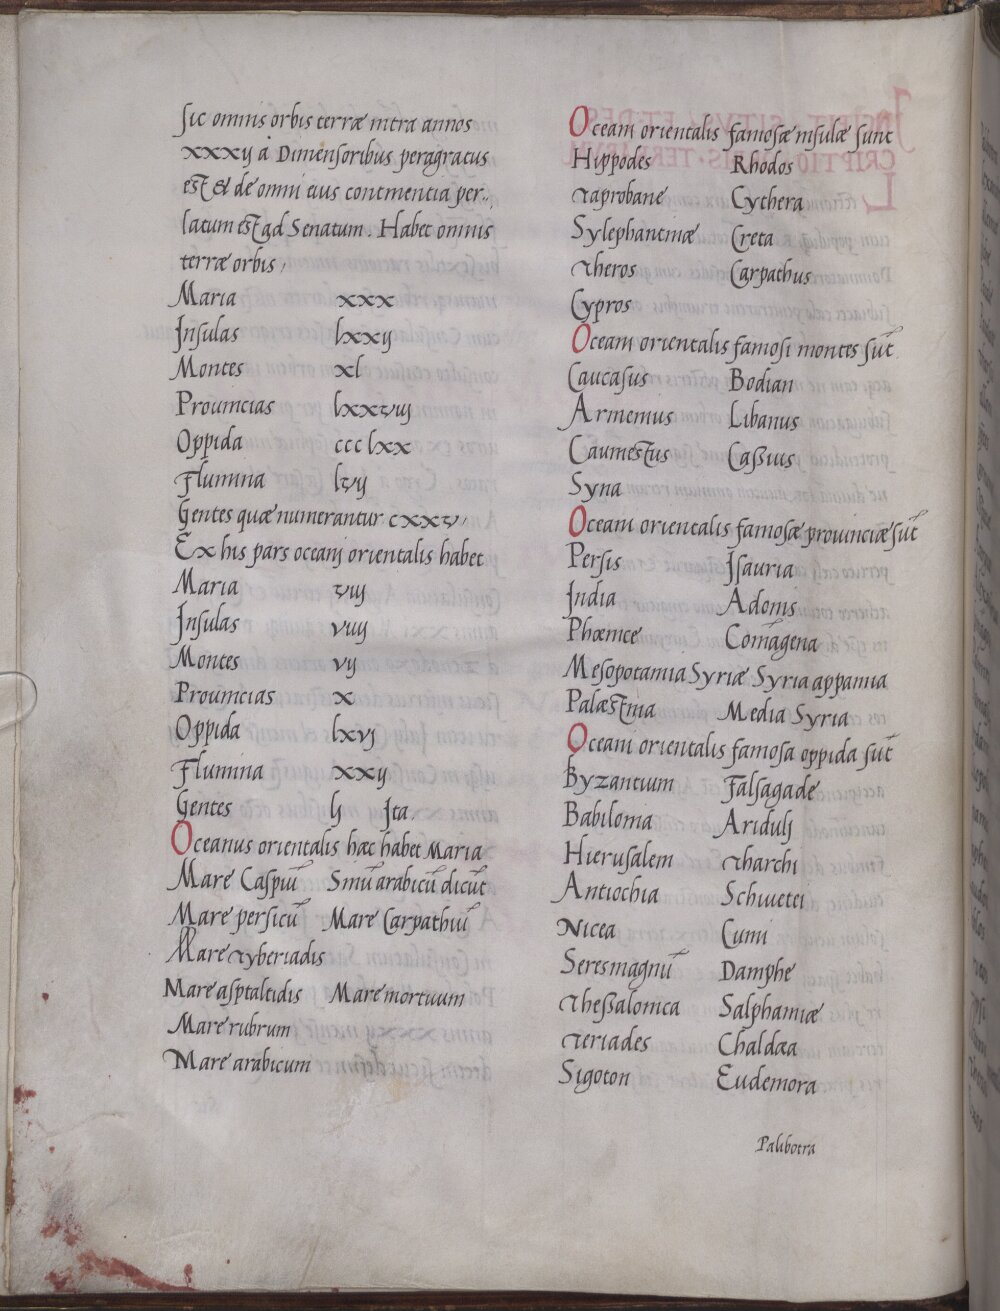 Sic omnis orbis terræ intra annos
xxxij à Dimensoribus peragratus
est & de omni eius continentia per-
latum est ad Senatum. Habet omnis
terræ orbis,
Maria xxx
Insulas lxxij
Montes xl
Prouincias lxxviij
Oppida ccclxx
Flumina lvij
Gentes quæ numerantur cxxv,
Ex his pars oceani orientalis habet
Maria viij
Insulas viij
Montes vij
Prouincias x
Oppida lxvj
Flumina xxij
Gentes lj Ita.
Oceanus orientalis hæc habet Maria
Mare Caspiũ Sinũ arabicũ dicũt
Mare persicũ Mare Carpathiũ
Mare tyberiadis
Mare asptaltidis Mare mortuum
Mare rubrum
Mare arabicum
Oceani orientalis famosæ insulæ sunt
Hippodes Rhodos
Taprobane Cythera
Sylephantinæ Creta
Theros Carpathus
Cypros
Oceani orientalis famosi montes sũt
Caucasus Bodian
Armenius Libanus
Caumestus Cassius
Syna
Oceani orientalis famosæ prouinciæ sũt
Persis Isauria
India Adonis
Phœnice Comãgena
Mesopotamia Syriæ Syria appamia
Palæstina Media Syria
Oceani orientalis famosa oppida sũt
Byzantium Falsagade
Babilonia Aridulj
Hierusalem Tharchi
Antiochia Schiuetei
Nicea Cumi
Seresmagnũ Damphe
Thessalonica Salphamiæ
Teriades Chaldæa
Sigoton Eudemora
Palibotra